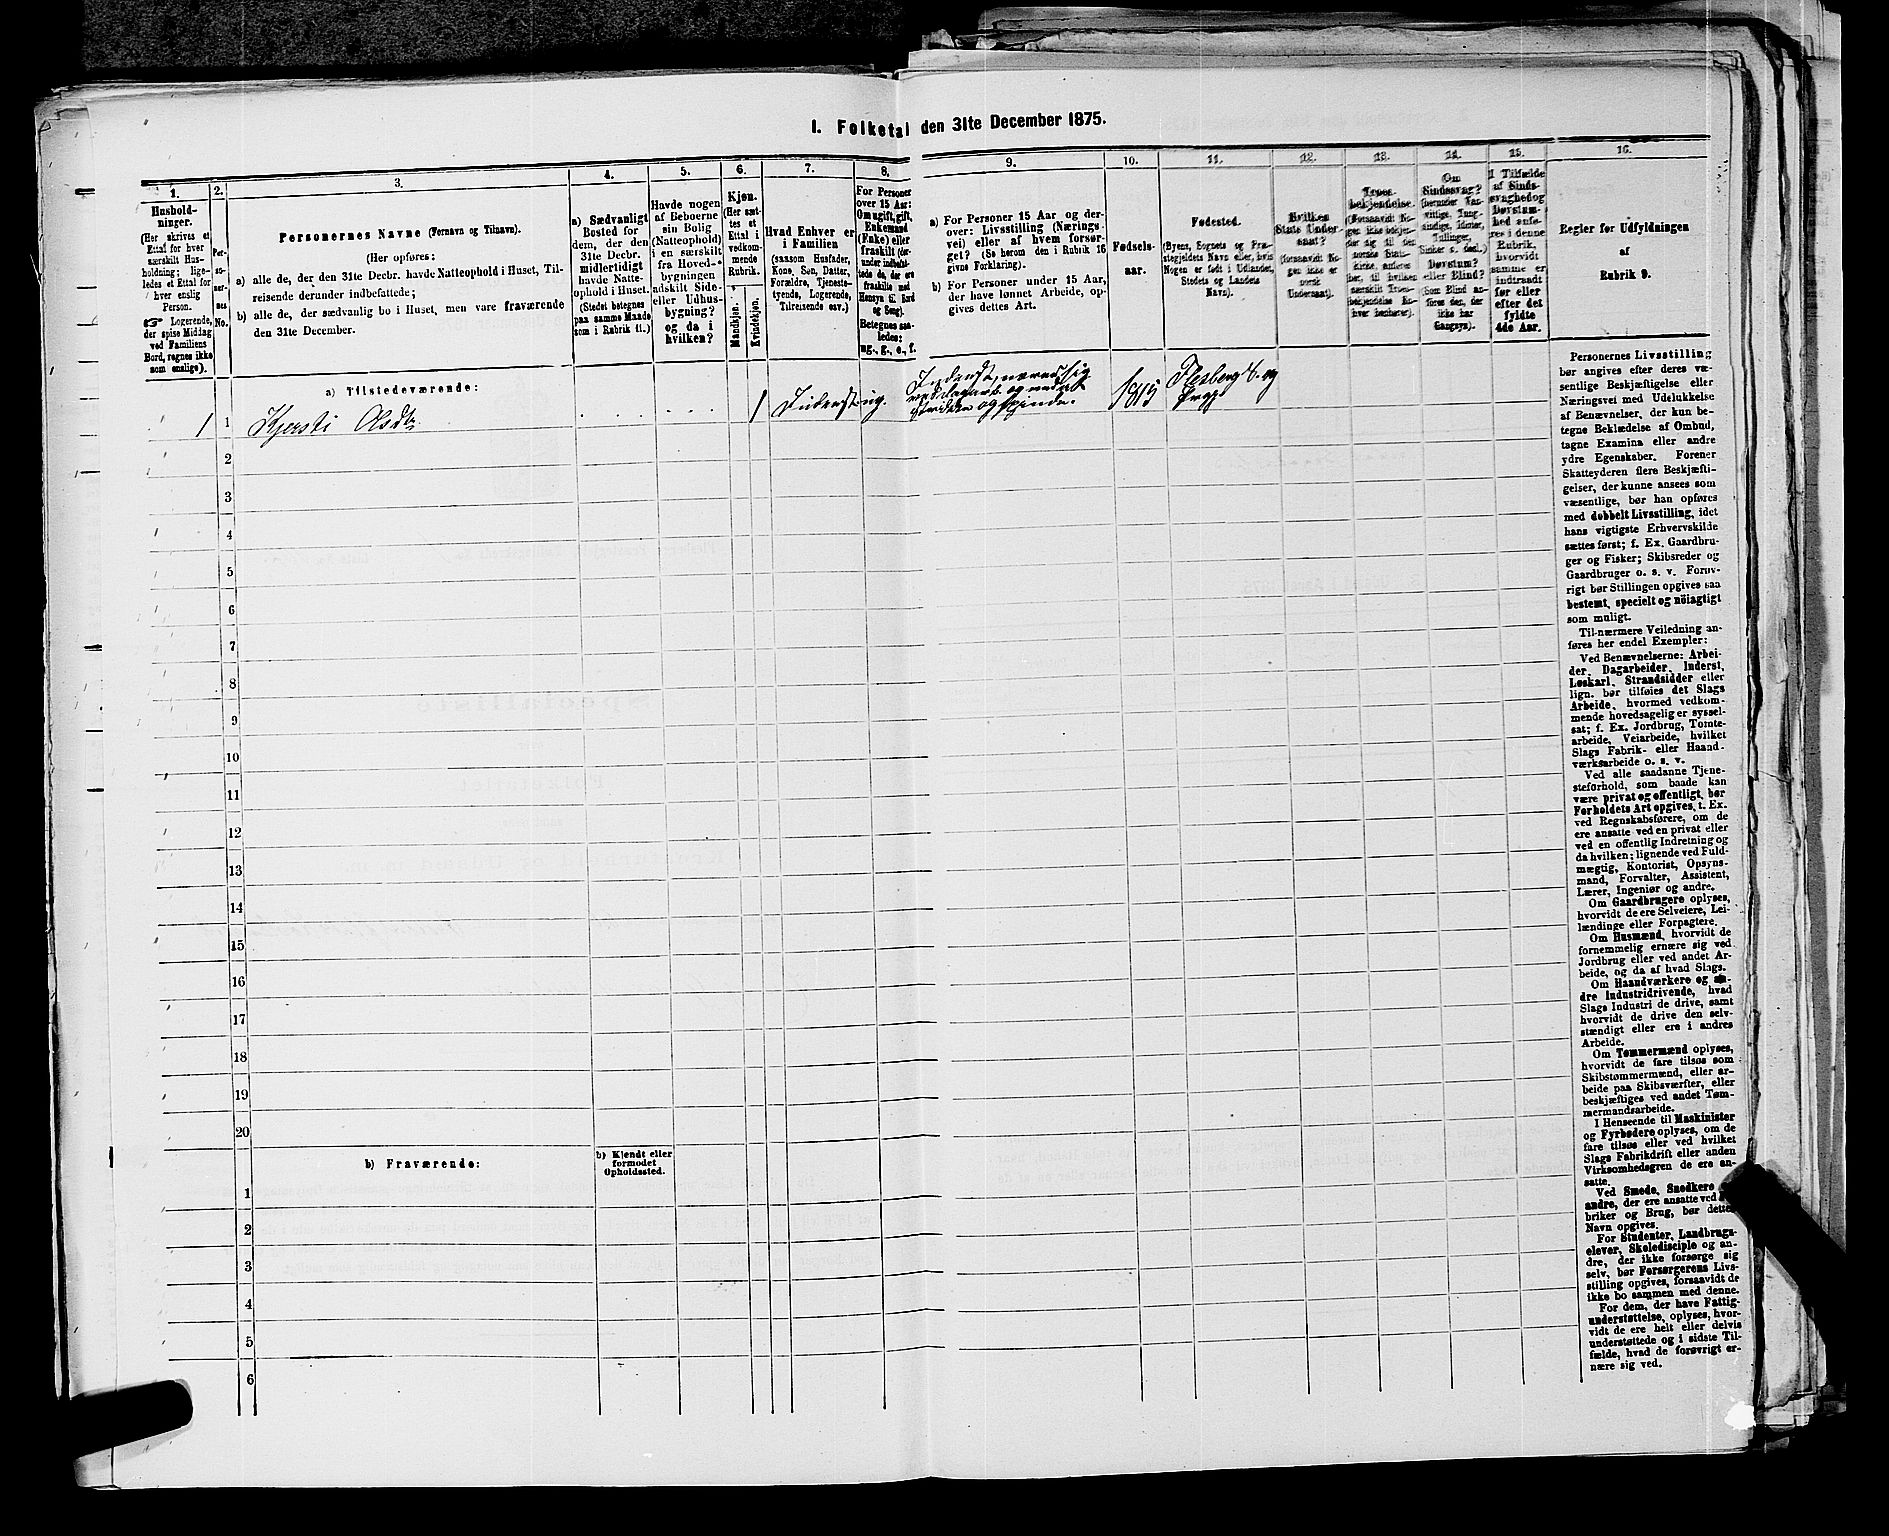 I. Folketal den 31te December 1875.
1.
Hushold-
ninger.
(Her skrives et
Ettal for hver
særskilt Hus-
holdning; lige-
ledes et Ettal for
hver enslig
Person.
☞ Logerende,
der spise Middag
ved Familiens
Bord, regnes ikke
som enslige).
2.
Per-
so-
ner-
nes
No.
3.
Personernes Navne (Fornavn og Tilnavn).
(Her opføres:
a) alle de, der den 31te Decbr. havde Natteophold i Huset, Til-
reisende derunder indbefattede;
b) alle de, der sædvanlig bo i Huset, men vare fraværende
den 31te December.
4.
a) Sædvanligt
Bosted for
dem, der den
31te Decbr.
midlertidigt
havde Natte-
ophold i Huset.
(Stedet betegnes
paa samme Maade
som i Rubrik 11.)
5.
Havde nogen
af Beboerne
sin Bolig
(Natteophold)
i en særskilt
fra Hoved-
bygningen
adskilt Side-
eller Udhus-
bygning?
og da i
hvilken?
6.
Kjøn.
(Her sæt-
tes et
Ettal i
vedkom-
mende
Rubrik.
Mandkjøn.
Kvindekjøn.
7.
Hvad Enhver er
i Familien
(saasom Husfader,
Kone, Søn, Datter,
Forældre, Tjeneste-
tyende, Logerende,
Tilreisende osv.)
8.
For Personer
over 15 Aar:
Om ugift, gift,
Enkemand
(Enke) eller
fraskilt (der-
under indbefat-
tede de, der ere
fraskilte med
Hensyn til Bord
og Seng).
Betegnes saa-
ledes:
ug., g., e., f.
9.
a) For Personer 15 Aar og der-
over: Livsstilling (Nærings-
vei) eller af hvem forsør-
get? (Se herom den i Rubrik 16
givne Forklaring).
b) For Personer under 15 Aar,
der have lønnet Arbeide, op-
gives dettes Art.
10.
Fødsels-
aar.
11.
Fødested.
(Byens, Sognets og Præ-
stegjeldets Navn eller, hvis
Nogen er født i Udlandet,
Stedets og Landets
Navn).
12.
Hvilken
Stats Under-
saat?
(forsaavidt No-
gen ikke er
norsk
Undersaat).
13.
Troes-
bekjendelse.
14.
Om
Sindssvag?
Døvstum?
eller Blind?
(Som Blind an-
føres den, der
ikke har
Gangsyn).
15.
I Tilfælde
af Sinds-
svaghed og
Døvstum-
hed anfø-
res i denne
Rubrik,
hvorvidt
samme er
indtraadt
før eller
efter det
fyldte
4de Aar.
16.
Regler for Udfyldningen
af
Rubrik 9.
a) Tilstedeværende:
1 1 Kjersti Olsdtr . . . . . . . 1 Inderst ug. 1815 Flesberg S. og
2
3
4
5
6
7
8
9
10
11
12
13
14
15
16
17
18
19
20
b) Fraværende:
b) Kjendt eller
formodet
Opholdssted.
1
2
3
4
5
6
Personernes Livsstilling
bør angives efter deres væ-
sentlige Beskjæftigelse eller
Næringsvei med Udelukkelse
af Benævnelser, der kun be-
tegne Beklædelse af Ombud,
tagne Examina eller andre
ydre Egenskaber. Forener
Skatteyderen flere Beskjæfti-
gelser, der kunne ansees som
væsentlige, bør han opføres
med dobbelt Livsstilling, idet
hans vigtigste Erhvervskilde
sættes først; f. Ex. Gaardbru-
ger og Fisker; Skibsreder og
Gaardbruger o. s. v. Forøv-
rigt bør Stillingen opgives saa
bestemt, specielt og nöiagtigt
som muligt.
Til nærmere Veiledning an-
føres her endel Exempler:
Ved Benævnelserne: Arbei-
der, Dagarbeider, Inderst,
Løskarl, Strandsidder eller
lign. bør tilføies det Slags
Arbeide, hvormed vedkom-
mende hovedsagelig er syssel-
sat; f. Ex. Jordbrug, Tomte-
arbeide, Veiarbeide, hvilket
Slags Fabrik- eller Haand-
værksarbeide o. s. v.
Ved alle saadanne Tjene-
steforhold, som baade kan
være privat og offentligt, bør
Forholdets Art opgives, t. Ex.
ved Regnskabsførere, om de
ere ansatte ved en privat eller
ved en offentlig Indretning og
da hvilken; lignende ved Fuld-
mægtig, Kontorist, Opsyns-
mand, Forvalter, Assistent,
Lærer, Ingeniør og andre.
Om Gaardbrugere oplyses,
hvorvidt de ere Selveiere, Lei-
lændinge eller Forpagtere.
Om Husmænd, hvorvidt de
fornemmelig ernære sig ved
Jordbrug eller ved andet Ar-
beide, og da af hvad Slags.
Om Haandværkere og an-
dre Industridrivende, hvad
Slags Industri de drive, samt
hvorvidt de drive den selv-
stændigt eller ere i andres
Arbeide.
Om Tømmermænd oplyses,
hvorvidt de fare tilsøs som
Skibstømmermænd, eller ar-
beide paa Skibsværfter, eller
beskjæftiges ved andet Tøm-
mermandsarbeide.
I Henseende til Maskinister
og Fyrbødere oplyses, om de
fare tilsøs eller ved hvilket
Slags Fabrikdrift eller anden
Virksomhedsgren de ere an-
satte.
Ved Smede, Snedkere
andre, der ere ansatte ved
briker og Brug, bør dettes
Navn opgives.
For Studenter, Landbrugs-
elever, Skoledisciple og an-
dre, der ikke forsørge sig
selv, bør Forsørgerens Livs-
stilling opgives, forsaavidt de
ikke bo sammen med denne.
For dem, der have Fattig-
understøttelse, oplyses, hvor-
vidt de ere helt eller delvis
understøttede og i sidste Til-
fælde, hvad de forøvrigt er-
nære sig ved.